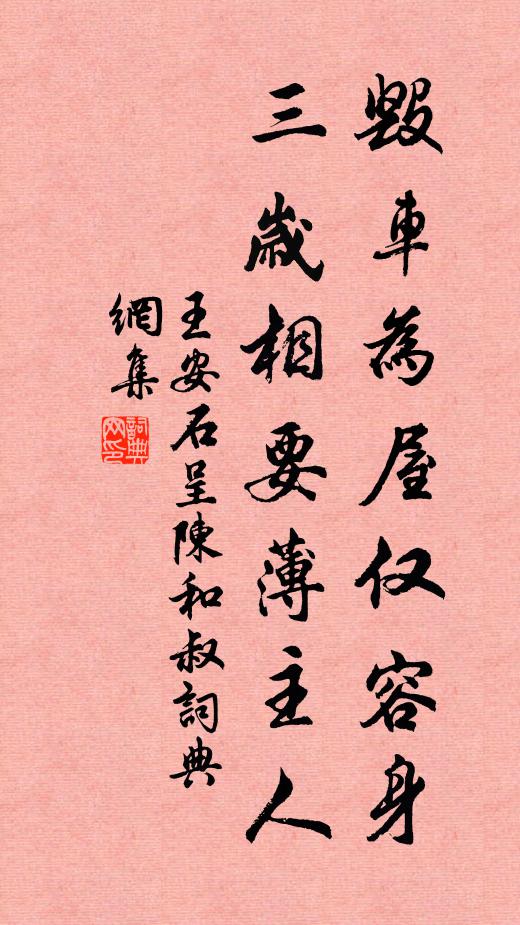 毀車為屋仅容身
三歲相要薄主人
王安石呈陳和叔詞典
網集
詞典網印